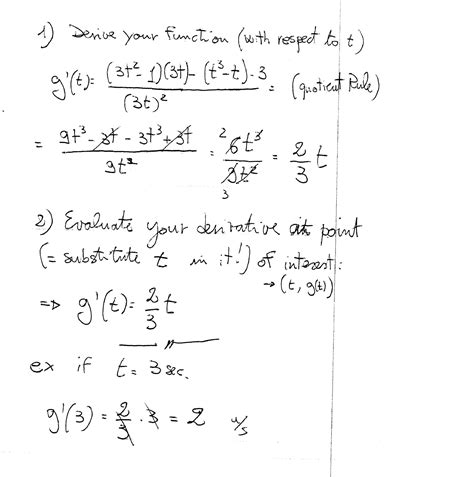 1) Derive your function (with respect to t)
g'(t)= (3t²-1)(3t)-(t³-t)·3 / (3t)² = (quotient Rule)
= 9t³-3t-3t³+3t / 9t² = ²6t³ / ₃9t² = 2/3 t
2) Evaluate your derivative at point
(= substitute t in it!) of interest:
→ (t, g(t))
=> g'(t)= 2/3 t
ex if t= 3 sec.
g'(3) = 2/3 · 3 = 2